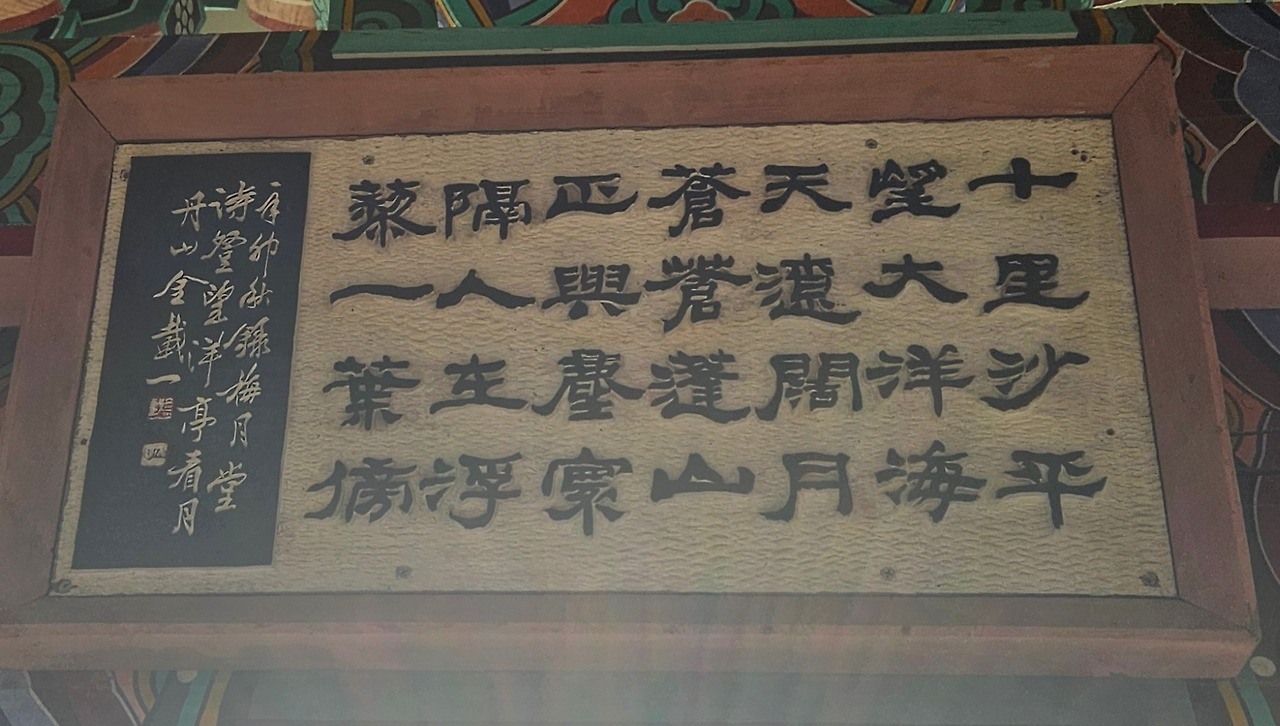 十里沙平
望大洋海
天遼闊月
蒼蒼蓬山
正與塵寰
隔人在浮
藜一葉傍
辛卯秋錄梅月堂
詩登望洋亭看月
丹山金戴一